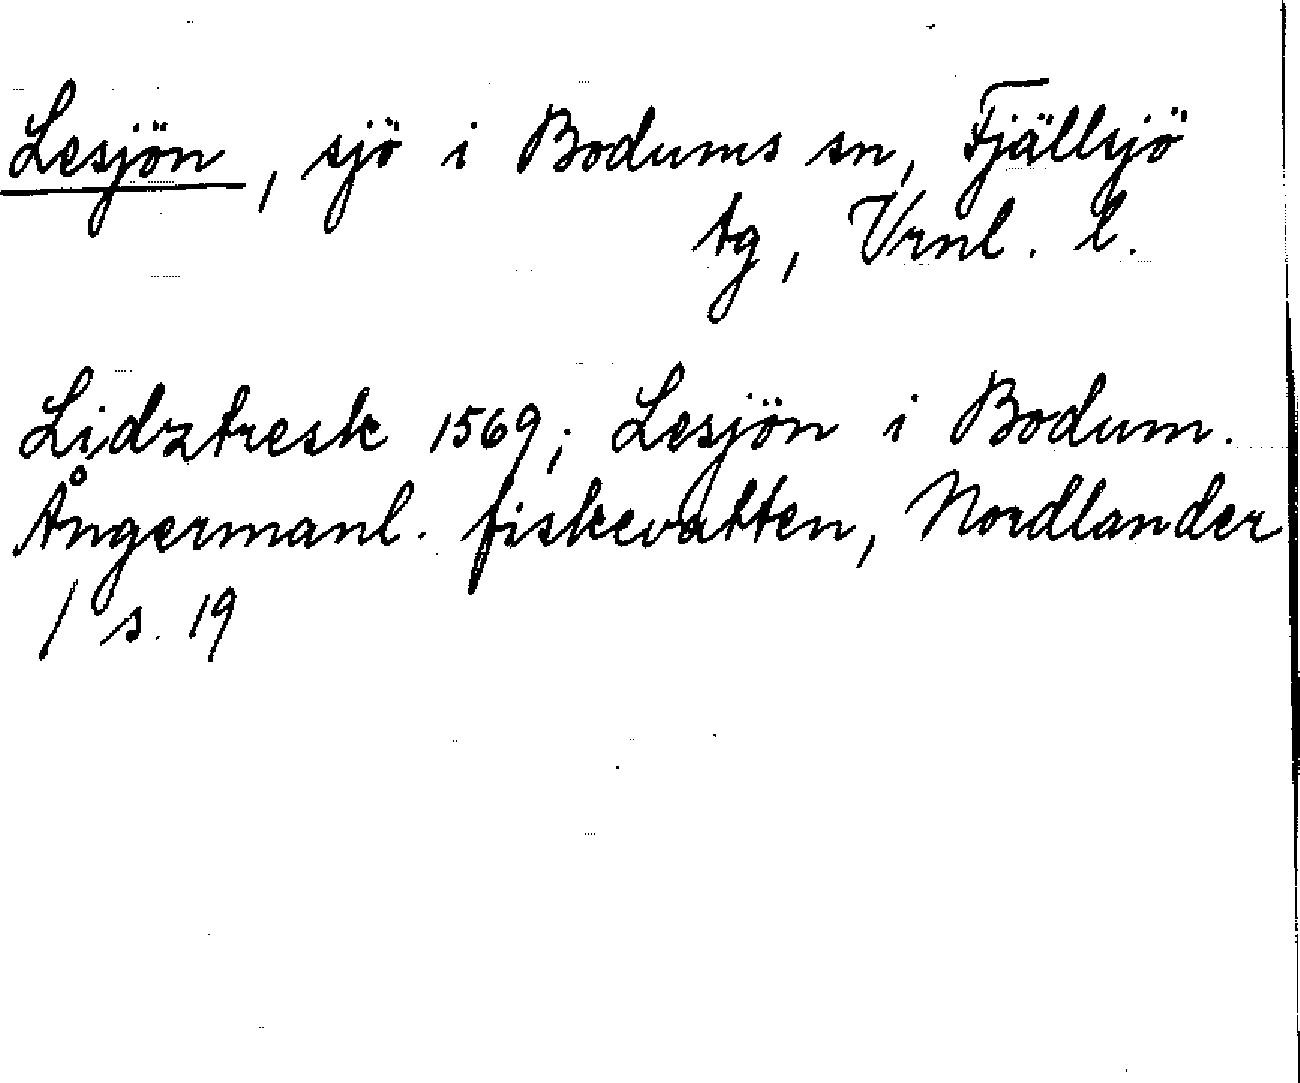 Lesjön, sjö i Bodums sn, Fjällsjö
tg, Vrnl. l.
Lidztresk 1569; Lesjön i Bodum.
Ångermanl. fiskevatten, Nordlander
/ s. 19